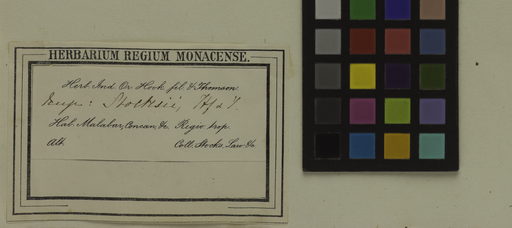 HERBARIUM REGIUM MONACENSE.
Herb. Ind. Or. Hook. fil. & Thomson.
Stocksii, H f & T
Hab. Malabar, Concan, &c. Regio trop.
Alt. Coll. Stocks, Law, &c.